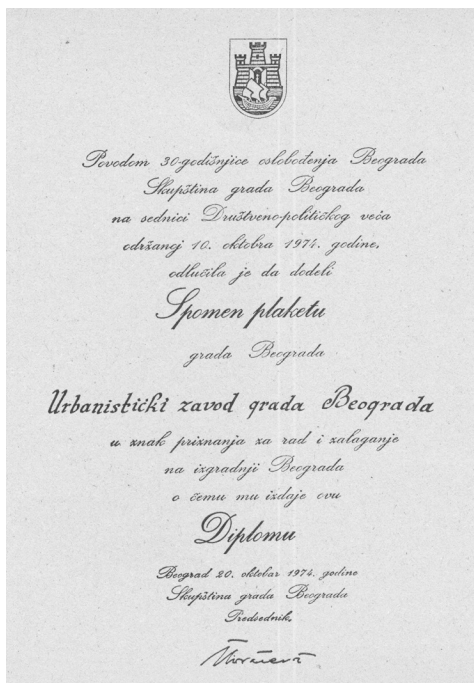 Povodom 30-godišnjice oslobođenja Beograda
Skupština grada Beograda
na sednici Društveno-političkog veća
održanoj 10. oktobra 1974. godine,
odlučila je da dodeli
Spomen plaketu
grada Beograda
Urbanistički zavod grada Beograda
u znak priznanja za rad i zalaganje
na izgradnji Beograda
o čemu mu izdaje ovu
Diplomu
Beograd 20. oktobar 1974. godine
Skupština grada Beograda
Predsednik,